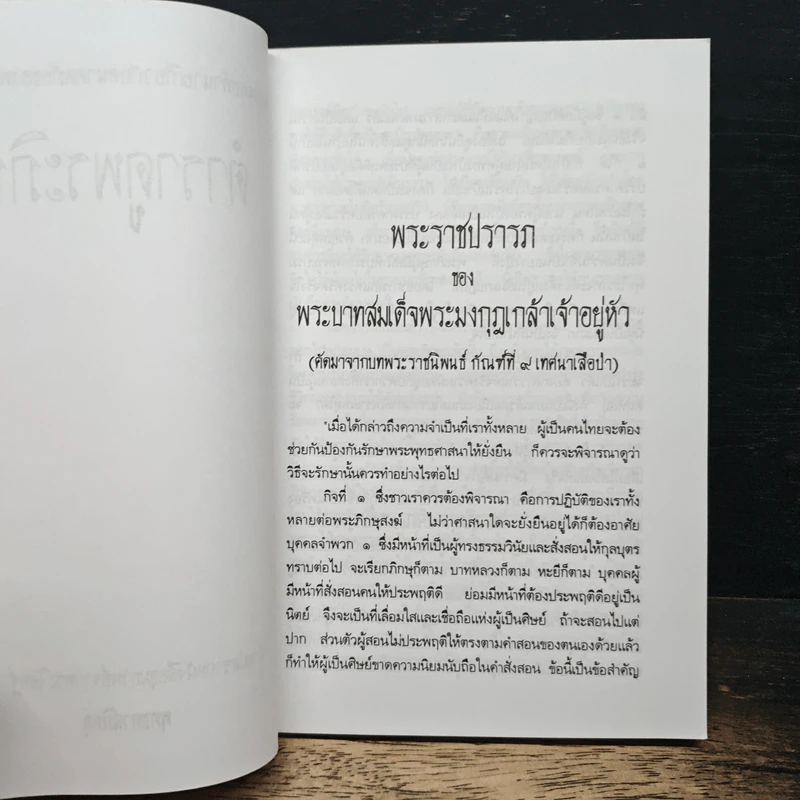 พระราชปรารภ
ของ
พระบาทสมเด็จพระมงกุฎเกล้าเจ้าอยู่หัว
(คัดมาจากบทพระราชนิพนธ์ กัณฑ์ที่ ๙ เทศนาเสือป่า)
"เมื่อได้กล่าวถึงความจำเป็นที่เราทั้งหลาย ผู้เป็นคนไทยจะต้อง
ช่วยกันป้องกันรักษาพระพุทธศาสนาให้ยั่งยืน ก็ควรจะพิจารณาดูว่า
วิธีจะรักษานั้นควรทำอย่างไรต่อไป
กิจที่ ๑ ซึ่งชาวเราควรต้องพิจารณา คือการปฏิบัติของเราทั้ง
หลายต่อพระภิกษุสงฆ์ ไม่ว่าศาสนาใดจะยั่งยืนอยู่ได้ก็ต้องอาศัย
บุคคลจำพวก ๑ ซึ่งมีหน้าที่เป็นผู้ทรงธรรมวินัยและสั่งสอนให้กุลบุตร
ทราบต่อไป จะเรียกภิกษุก็ตาม บาทหลวงก็ตาม หะยีก็ตาม บุคคลผู้
มีหน้าที่สั่งสอนคนให้ประพฤติดี ย่อมมีหน้าที่ต้องประพฤติดีอยู่เป็น
นิตย์ จึงจะเป็นที่เลื่อมใสและเชื่อถือแห่งผู้เป็นศิษย์ ถ้าจะสอนไปแต่
ปาก ส่วนตัวผู้สอนไม่ประพฤติให้ตรงตามคำสอนของตนเองด้วยแล้ว
ก็ทำให้ผู้เป็นศิษย์ขาดความนิยมนับถือในคำสั่งสอน ข้อนี้เป็นข้อสำคัญ